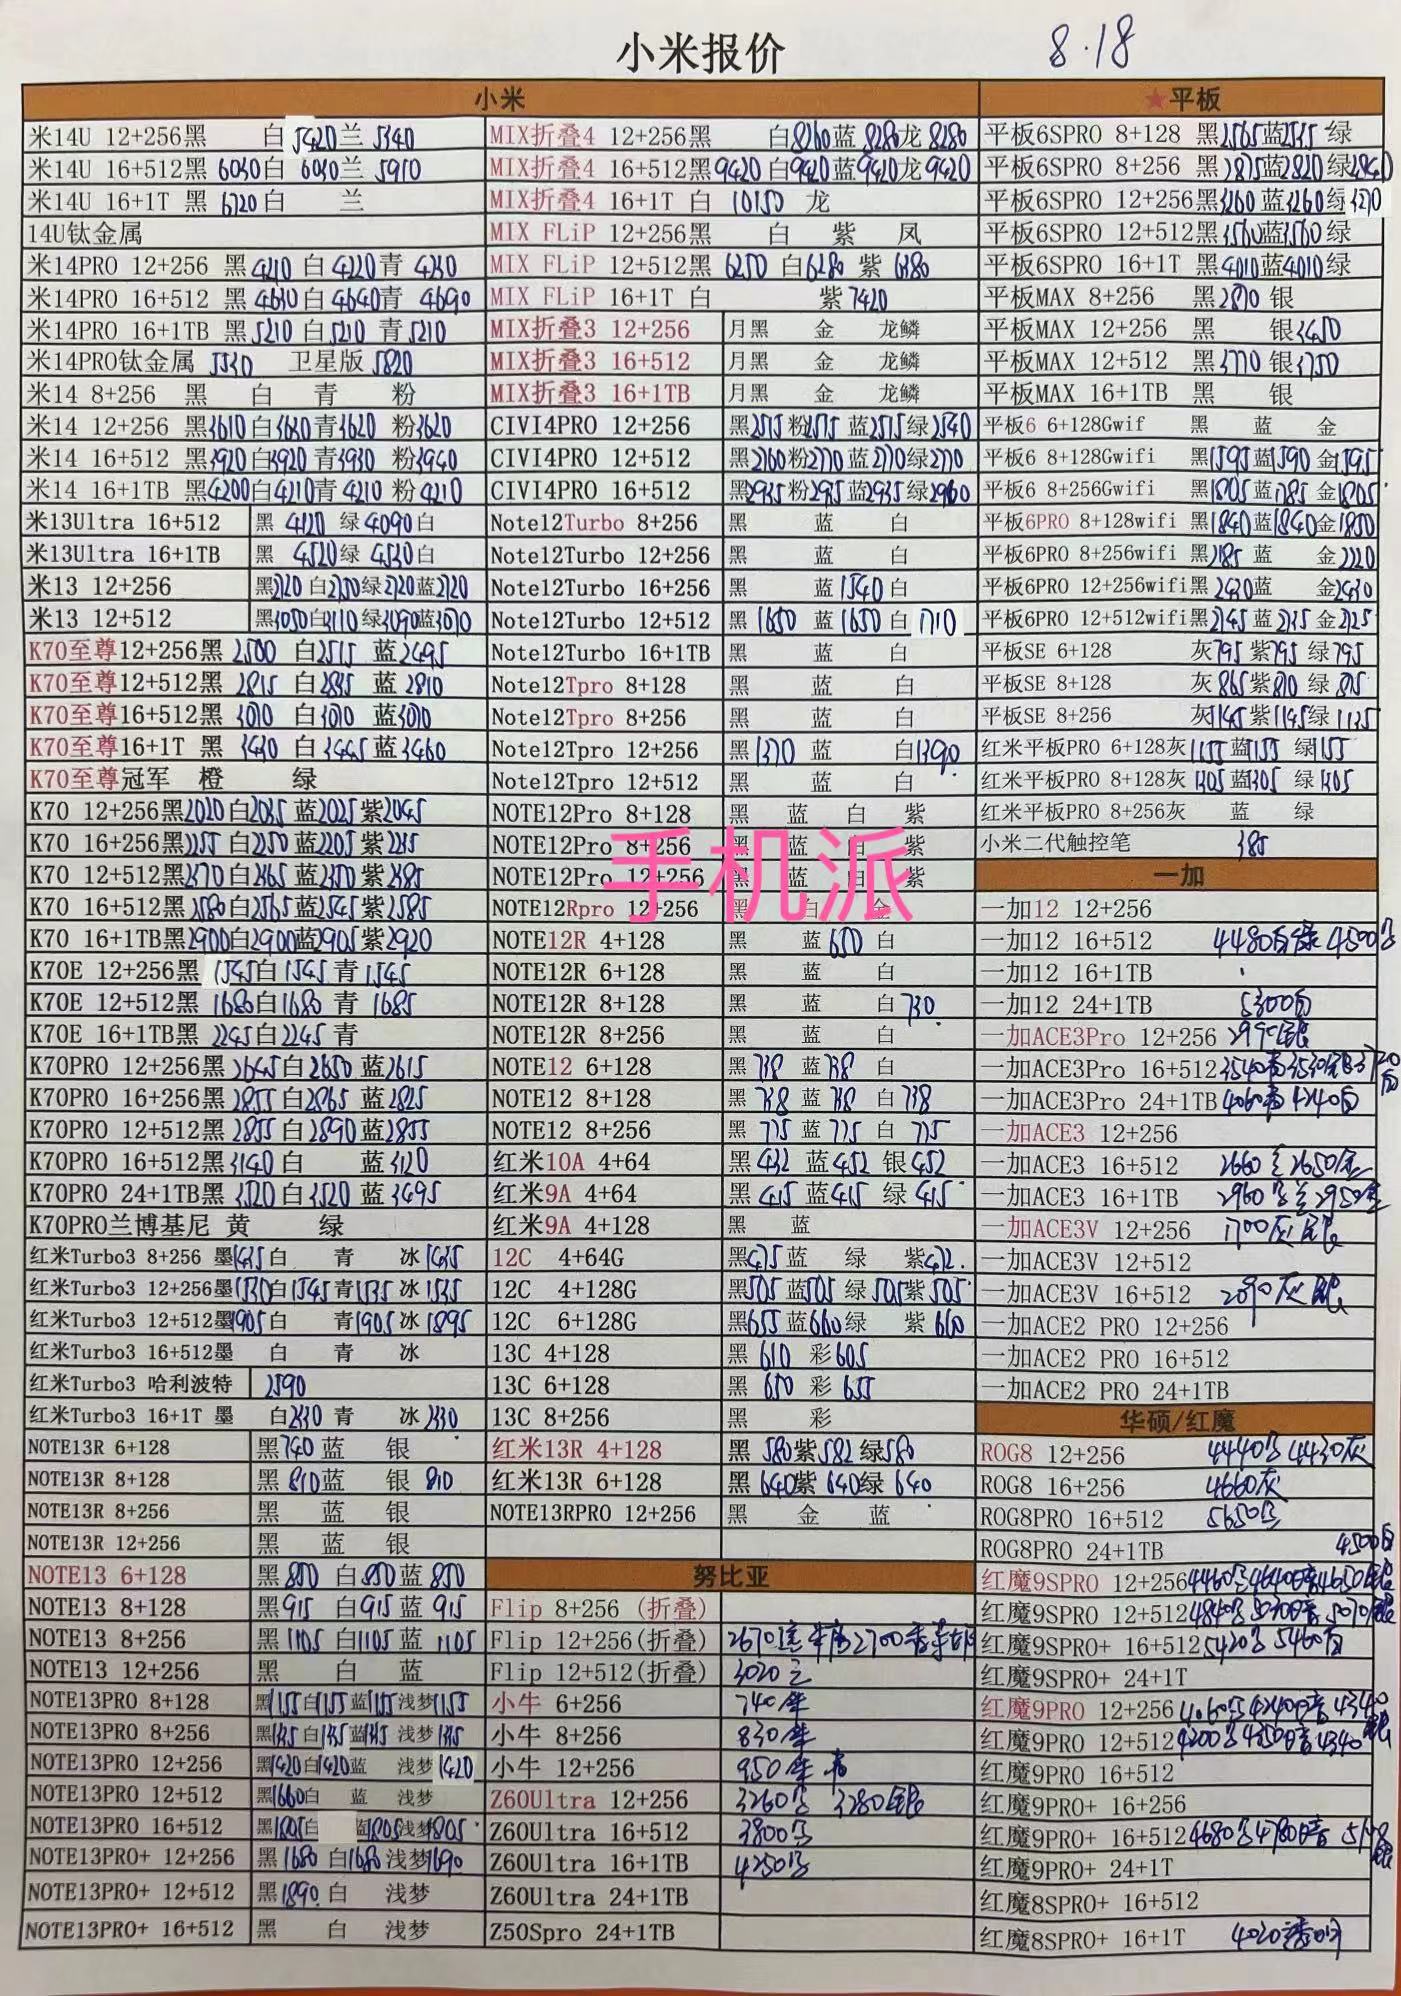 小米报价 8.18
小米
米14U 12+256黑 白5420兰 5340
米14U 16+512黑 6030白 6030兰 5910
米14U 16+1T 黑 6720白 兰
14U钛金属
米14PRO 12+256 黑4210 白4220青 4230
米14PRO 16+512 黑4630白4640青 4690
米14PRO 16+1TB 黑5210 白5210 青5210
米14PRO钛金属 5530 卫星版5820
米14 8+256 黑 白 青 粉
米14 12+256 黑3610白3630青3620 粉3620
米14 16+512 黑3920白3920青3930 粉3940
米14 16+1TB 黑4200白4210青4210 粉4210
米13Ultra 16+512 黑 4120 绿4090白
米13Ultra 16+1TB 黑 4520绿 4530白
米13 12+256 绿2720蓝2720
米13 12+512 黑3050白3110绿3090蓝3070
K70至尊12+256黑 2500 白2515 蓝2495
K70至尊12+512黑 2815 白2835 蓝2810
K70至尊16+512黑 3010 白3010 蓝3010
K70至尊16+1T 黑 3430 白3445蓝3460
K70至尊冠军 橙 绿
K70 12+256黑2020白2035蓝2025紫2045
K70 16+256黑2155 白2150蓝2205紫2235
K70 12+512黑2370白2365蓝2350紫2385
K70 16+512黑2580白2565蓝2545紫2585
K70 16+1TB黑2900白2900蓝2905紫2920
K70E 12+256黑 1545白1545 青1545
K70E 12+512黑 1680白1680 青 1685
K70E 16+1TB黑 2245白2245 青
K70PRO 12+256黑 2645白2650 蓝2615
K70PRO 16+256黑 2855白2865 蓝2825
K70PRO 12+512黑 2855白2890蓝2855
K70PRO 16+512黑3140白 蓝3120
K70PRO 24+1TB黑3520白3520 蓝3495
K70PRO兰博基尼 黄 绿
红米Turbo3 8+256 墨1435白 青 冰1435
红米Turbo3 12+256墨1530白1545青1535 冰1535
红米Turbo3 12+512墨1905白 青1905冰1895
红米Turbo3 16+512墨 白 青 冰
红米Turbo3 哈利波特 2590
红米Turbo3 16+1T 墨 白2330 青 冰2330
NOTE13R 6+128 黑740蓝 银
NOTE13R 8+128 黑810蓝 银810
NOTE13R 8+256 黑 蓝 银
NOTE13R 12+256 黑 蓝 银
NOTE13 6+128 黑850 白850蓝850
NOTE13 8+128 黑915 白915蓝 915
NOTE13 8+256 黑1105 白1105蓝 1105
NOTE13 12+256 黑 白 蓝
NOTE13PRO 8+128 黑1155白1155蓝1155浅梦1155
NOTE13PRO 8+256 黑1345白1345蓝1345浅梦1345
NOTE13PRO 12+256 黑1420白1420蓝 浅梦1420
NOTE13PRO 12+512 黑1660白 蓝 浅梦
NOTE13PRO 16+512 黑1805白 蓝1805浅梦1805
NOTE13PRO+ 12+256 黑1680 白1680浅梦1690
NOTE13PRO+ 12+512 黑1890 白 浅梦
NOTE13PRO+ 16+512 黑 白 浅梦
MIX折叠4 12+256黑 白8260蓝 8280龙 8280
MIX折叠4 16+512黑9420 白9420蓝9420龙9420
MIX折叠4 16+1T 白 10150 龙
MIX FLiP 12+256黑 白 紫 凤
MIX FLiP 12+512黑 6250 白6280 紫 6380
MIX FLiP 16+1T 白 紫7420
MIX折叠3 12+256 月黑 金 龙鳞
MIX折叠3 16+512 月黑 金 龙鳞
MIX折叠3 16+1TB 月黑 金 龙鳞
CIVI4PRO 12+256 黑2515粉2575 蓝2515绿2540
CIVI4PRO 12+512 黑2760粉2770 蓝2770绿2770
CIVI4PRO 16+512 黑2935粉2935蓝2935绿2960
Note12Turbo 8+256 黑 蓝 白
Note12Turbo 12+256 黑 蓝 白
Note12Turbo 16+256 黑 蓝1540白
Note12Turbo 12+512 黑 1650 蓝1650白 1710
Note12Turbo 16+1TB 黑 蓝 白
Note12Tpro 8+128 黑 蓝 白
Note12Tpro 8+256 黑 蓝 白
Note12Tpro 12+256 黑1370 蓝 白1390
Note12Tpro 12+512 黑 蓝 白
NOTE12Pro 8+128 黑 蓝 白 紫
NOTE12Pro 8+256 黑 蓝 白 紫
NOTE12Pro 12+256 黑 蓝 白 紫
NOTE12Rpro 12+256 黑 白 金
手机派
NOTE12R 4+128 黑 蓝650 白
NOTE12R 6+128 黑 蓝 白
NOTE12R 8+128 黑 蓝 白730
NOTE12R 8+256 黑 蓝 白
NOTE12 6+128 黑738 蓝738 白
NOTE12 8+128 黑 738 蓝738 白738
NOTE12 8+256 黑 775 蓝775 白 775
红米10A 4+64 黑 432 蓝452 银452
红米9A 4+64 黑 415 蓝415 绿 415
红米9A 4+128 黑 蓝
12C 4+64G 黑475蓝 绿 紫472
12C 4+128G 黑505蓝505 绿505紫505
12C 6+128G 黑655蓝660绿 紫660
13C 4+128 黑 610 彩605
13C 6+128 黑 650 彩 655
13C 8+256 黑 彩
红米13R 4+128 黑 580紫582绿580
红米13R 6+128 黑 640紫640绿 640
NOTE13RPRO 12+256 黑 金 蓝
努比亚
Flip 8+256 (折叠)
Flip 12+256(折叠) 2670
Flip 12+512(折叠) 3020
小牛 6+256 740
小牛 8+256 830
小牛 12+256 950
Z60Ultra 12+256 3260 3280银
Z60Ultra 16+512 3800
Z60Ultra 16+1TB 4250
Z60Ultra 24+1TB
Z50Spro 24+1TB
★平板
平板6SPRO 8+128 黑2565蓝2535 绿
平板6SPRO 8+256 黑2875蓝2820绿2840
平板6SPRO 12+256黑3260 蓝3260绿3270
平板6SPRO 12+512黑3560蓝3560绿
平板6SPRO 16+1T 黑4010蓝4010绿
平板MAX 8+256 黑2870 银
平板MAX 12+256 黑 银3450
平板MAX 12+512 黑3770 银3750
平板MAX 16+1TB 黑 银
平板6 6+128Gwif 黑 蓝 金
平板6 8+128Gwifi 黑1595蓝1590 金1595
平板6 8+256Gwifi 黑1805蓝1785 金1805
平板6PRO 8+128wifi 黑1840蓝1840金1850
平板6PRO 8+256wifi 黑2185 蓝 金2220
平板6PRO 12+256wifi黑2430蓝 金2430
平板6PRO 12+512wifi黑2745蓝2735金2725
平板SE 6+128 灰795紫795 绿795
平板SE 8+128 灰865紫870 绿875
平板SE 8+256 灰1145紫1145绿1135
红米平板PRO 6+128灰1155蓝1155 绿1155
红米平板PRO 8+128灰1305蓝1305 绿1305
红米平板PRO 8+256灰 蓝 绿
小米二代触控笔 385
一加
一加12 12+256
一加12 16+512 4480白绿 4500
一加12 16+1TB
一加12 24+1TB 5300白
一加ACE3Pro 12+256 2990银
一加ACE3Pro 16+512 3540青3530银
一加ACE3Pro 24+1TB 4060青4240白
一加ACE3 12+256
一加ACE3 16+512 2660 2650金
一加ACE3 16+1TB 2960 2950金
一加ACE3V 12+256 1700灰银
一加ACE3V 12+512
一加ACE3V 16+512 2090灰银
一加ACE2 PRO 12+256
一加ACE2 PRO 16+512
一加ACE2 PRO 24+1TB
华硕/红魔
ROG8 12+256 4440 4430灰
ROG8 16+256 4660灰
ROG8PRO 16+512 5650
ROG8PRO 24+1TB
4500白
红魔9SPRO 12+256 4460 4640暗4650银
红魔9SPRO 12+512 4840 5030暗5070银
红魔9SPRO+ 16+512 5420 5460白
红魔9SPRO+ 24+1T
红魔9PRO 12+256 4060 4240暗4340
红魔9PRO 12+512 4200 4350暗4340银
红魔9PRO 16+512
红魔9PRO+ 16+256
红魔9PRO+ 16+512 4680 4780暗
红魔9PRO+ 24+1T
红魔8SPRO+ 16+512
红魔8SPRO+ 16+1T 4020透明